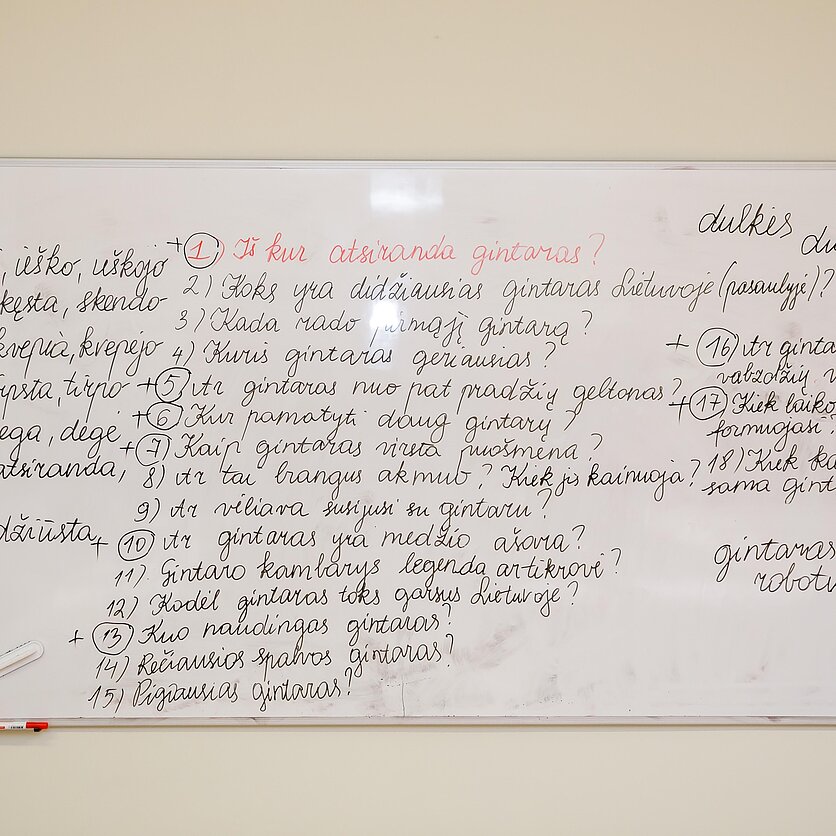 , ieško, ieškojo
kęsta, skendo
kvepia, kvepėjo
psta, tirpo
ega, degė
atsiranda,
džiūsta
+ 1) Iš kur atsiranda gintaras?
2) Koks yra didžiausias gintaras Lietuvoje (pasaulyje)?
3) Kada rado pirmąjį gintarą?
4) Kuris gintaras geriausias?
+ 5) Ar gintaras nuo pat pradžių geltonas?
+ 6) Kur pamatyti daug gintarų?
+ 7) Kaip gintaras virsta puošmena?
8) Ar tai brangus akmuo? Kiek jis kainuoja?
9) Ar vėliava susijusi su gintaru?
+ 10) Ar gintaras yra medžio ašara?
11) Gintaro kambarys legenda ar tikrovė?
12) Kodėl gintaras toks garsus Lietuvoje?
+ 13) Kuo naudingas gintaras?
14) Rečiausios spalvos gintaras?
15) Pigiausias gintaras?
dulkės
du
+ 16) Ar ginta
vabzdžių v
+ 17) Kiek laiko
formuojasi?
18) Kiek ka
sama gint
gintaras
robotu